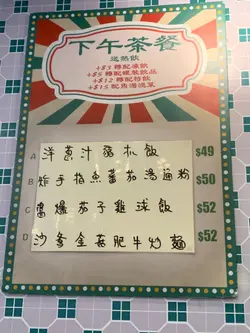 下午茶餐
送熱飲
+$3 轉配凍飲
+$5 轉配罐裝飲品
+$12 轉配特飲
+$15 配魚湯
A 洋蔥汁豬扒飯 $49
B 炸手指魚蕃茄湯通粉 $50
C 爆茄子雞球飯 $52
D 沙爹金菇肥牛炒麵 $52